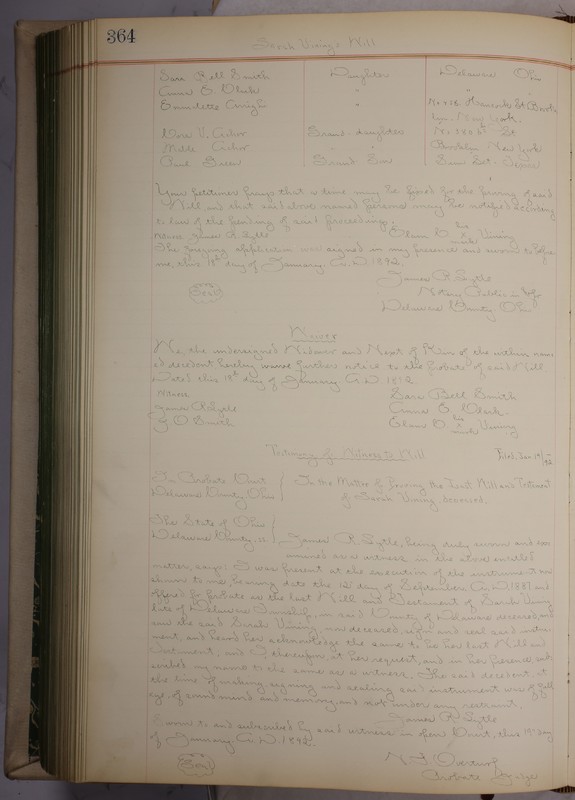 364
Sarah Vining's Will
Sara Bell Smith Daughter Delaware Ohio
Anna E. Clark " "
Bernadette No. 726 St Brook-
lyn New York
Cora V. Grand-daughter No. St
" Brooklyn New York
Paul Green Grand Son
Your petitioner prays that a time may be fixed for the proving of said
Will and that said above named persons may be notified according
to law of the pending of said proceedings.
Witness James R. Lytle Elam O. his mark Vining
The foregoing application was signed in my presence and sworn to before
me, this 19th day of January A.D. 1892
James R. Lytle
Seal Notary Public in & for
Delaware County Ohio
Waiver
We the undersigned Widower and Next of Kin of the within nam-
ed decedent hereby waive further notice to the probate of said Will
Dated this 19th day of January A.D. 1892
Witness Sara Bell Smith
James R. Lytle Anna E. Clark
G O Smith Elam O. his mark Vining
Testimony of Witness to Will Filed Jan 19/92
In Probate Court In the Matter of proving the Last Will and Testament
Delaware County, Ohio of Sarah Vining deceased.
The State of Ohio
Delaware County, ss. James R. Lytle, being duly sworn and exa-
mined as a witness in the above entitled
matter, says: I was present at the execution of the instrument now
shown to me bearing date the 12 day of September A.D. 1887 and
offered for probate as the last Will and Testament of Sarah Vining
late of Delaware Township, in said County of Delaware deceased, and
saw the said Sarah Vining, now deceased, sign and seal said instru-
ment, and heard her acknowledge the same to be her last Will and
Testament; and I thereupon, at her request, and in her presence sub-
scribed my name to the same as a witness. The said decedent, at
the time of making signing and sealing said instrument was of full
age, of sound mind and memory, and not under any restraint.
James R. Lytle
Sworn to and subscribed by said witness in open Court, this 19 day
of January, A.D. 1892.
Seal N. F. Overturf
Probate Judge